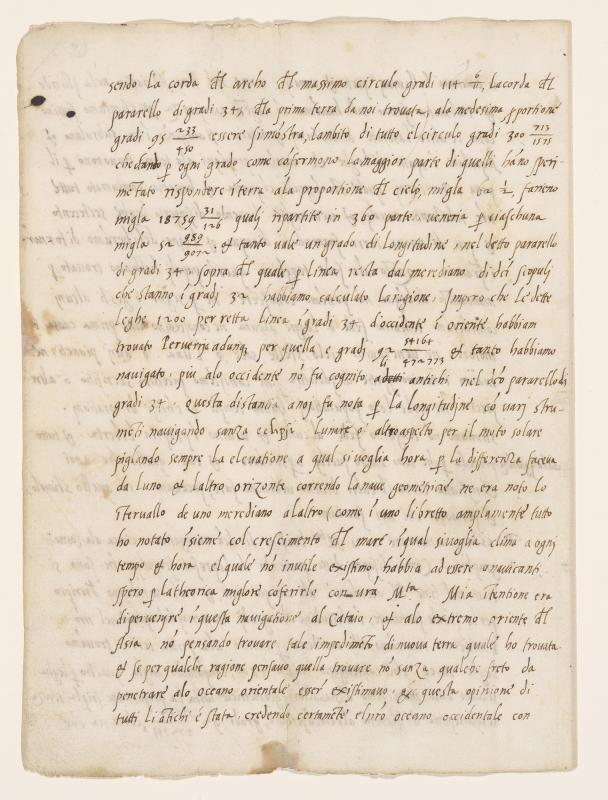 sendo la corda dl archo dl massimo circulo gradi 114 6/11, la corda dl
pararello di gradi 34, dla prima terra da noi trovata, ala medesima pportione
gradi 95 233/450 essere si mostra, lambito di tutto el circulo gradi 300 713/1575
che dando p ogni grado come cofermono la maggior parte di quelli hano speri-
metato rispondere i terra ala proportione dl cielo, migla 62 1/2, fareno
migla 18759 31/126 quali ripartite in 360 parte veneria p ciaschuna
migla 52 989/9072, & tanto vale un grado di longitudine, nel detto pararello
di gradi 34, sopra dl quale p linea recta dal merediano di dci scopuli
che stanno i gradi 32 habbiamo calculato la ragione. Impero che le dette
leghe 1200 per retta linea i gradi 34 d'occidente i oriente habbiam
trovato Perverria adunq per quella e gradi 92 54164/472773 & tanto habbiamo
navigato, piu alo occidente no fu cognito, a li antichi nel dco pararello di
gradi 34. Questa distantia a noi fu nota p la longitudine co varj stru-
meti navigando sanza eclipsi lunare o altro aspecto per il moto solare
piglando sempre la elevatione a qual si voglia hora p la differenza faceva
da luno & laltro orizonte correndo la nave geometrice ne era noto lo
itervallo de uno merediano alaltro (come i uno libretto amplamente tutto
ho notato isieme col crescimento dl mare, i qual si voglia clima a ogni
tempo & hora el quale no inutile existimo habbia ad essere a navicanti
spero p la theorica miglore coferirlo con vra Mta. Mia itentione era
di pervenire i questa navigatione al Cataio, & alo extremo oriente dl
Asia, no pensando trovare tale impedimeto di nuova terra quale ho trovata
& se per qualche ragione pensavo quella trovare no sanza qualche freto da
penetrare alo oceano orientale esser existimavo, & questa opinione di
tutti li atichi e stata, credendo certamete el nro oceano occidentale con